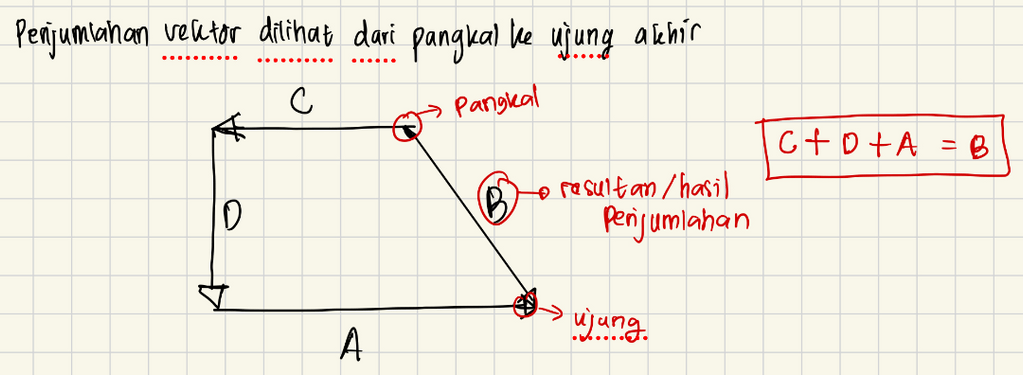 Penjumlahan vektor dilihat dari pangkal ke ujung akhir
C
Pangkal
C + D + A = B
D
B
resultan/hasil
Penjumlahan
ujung
A